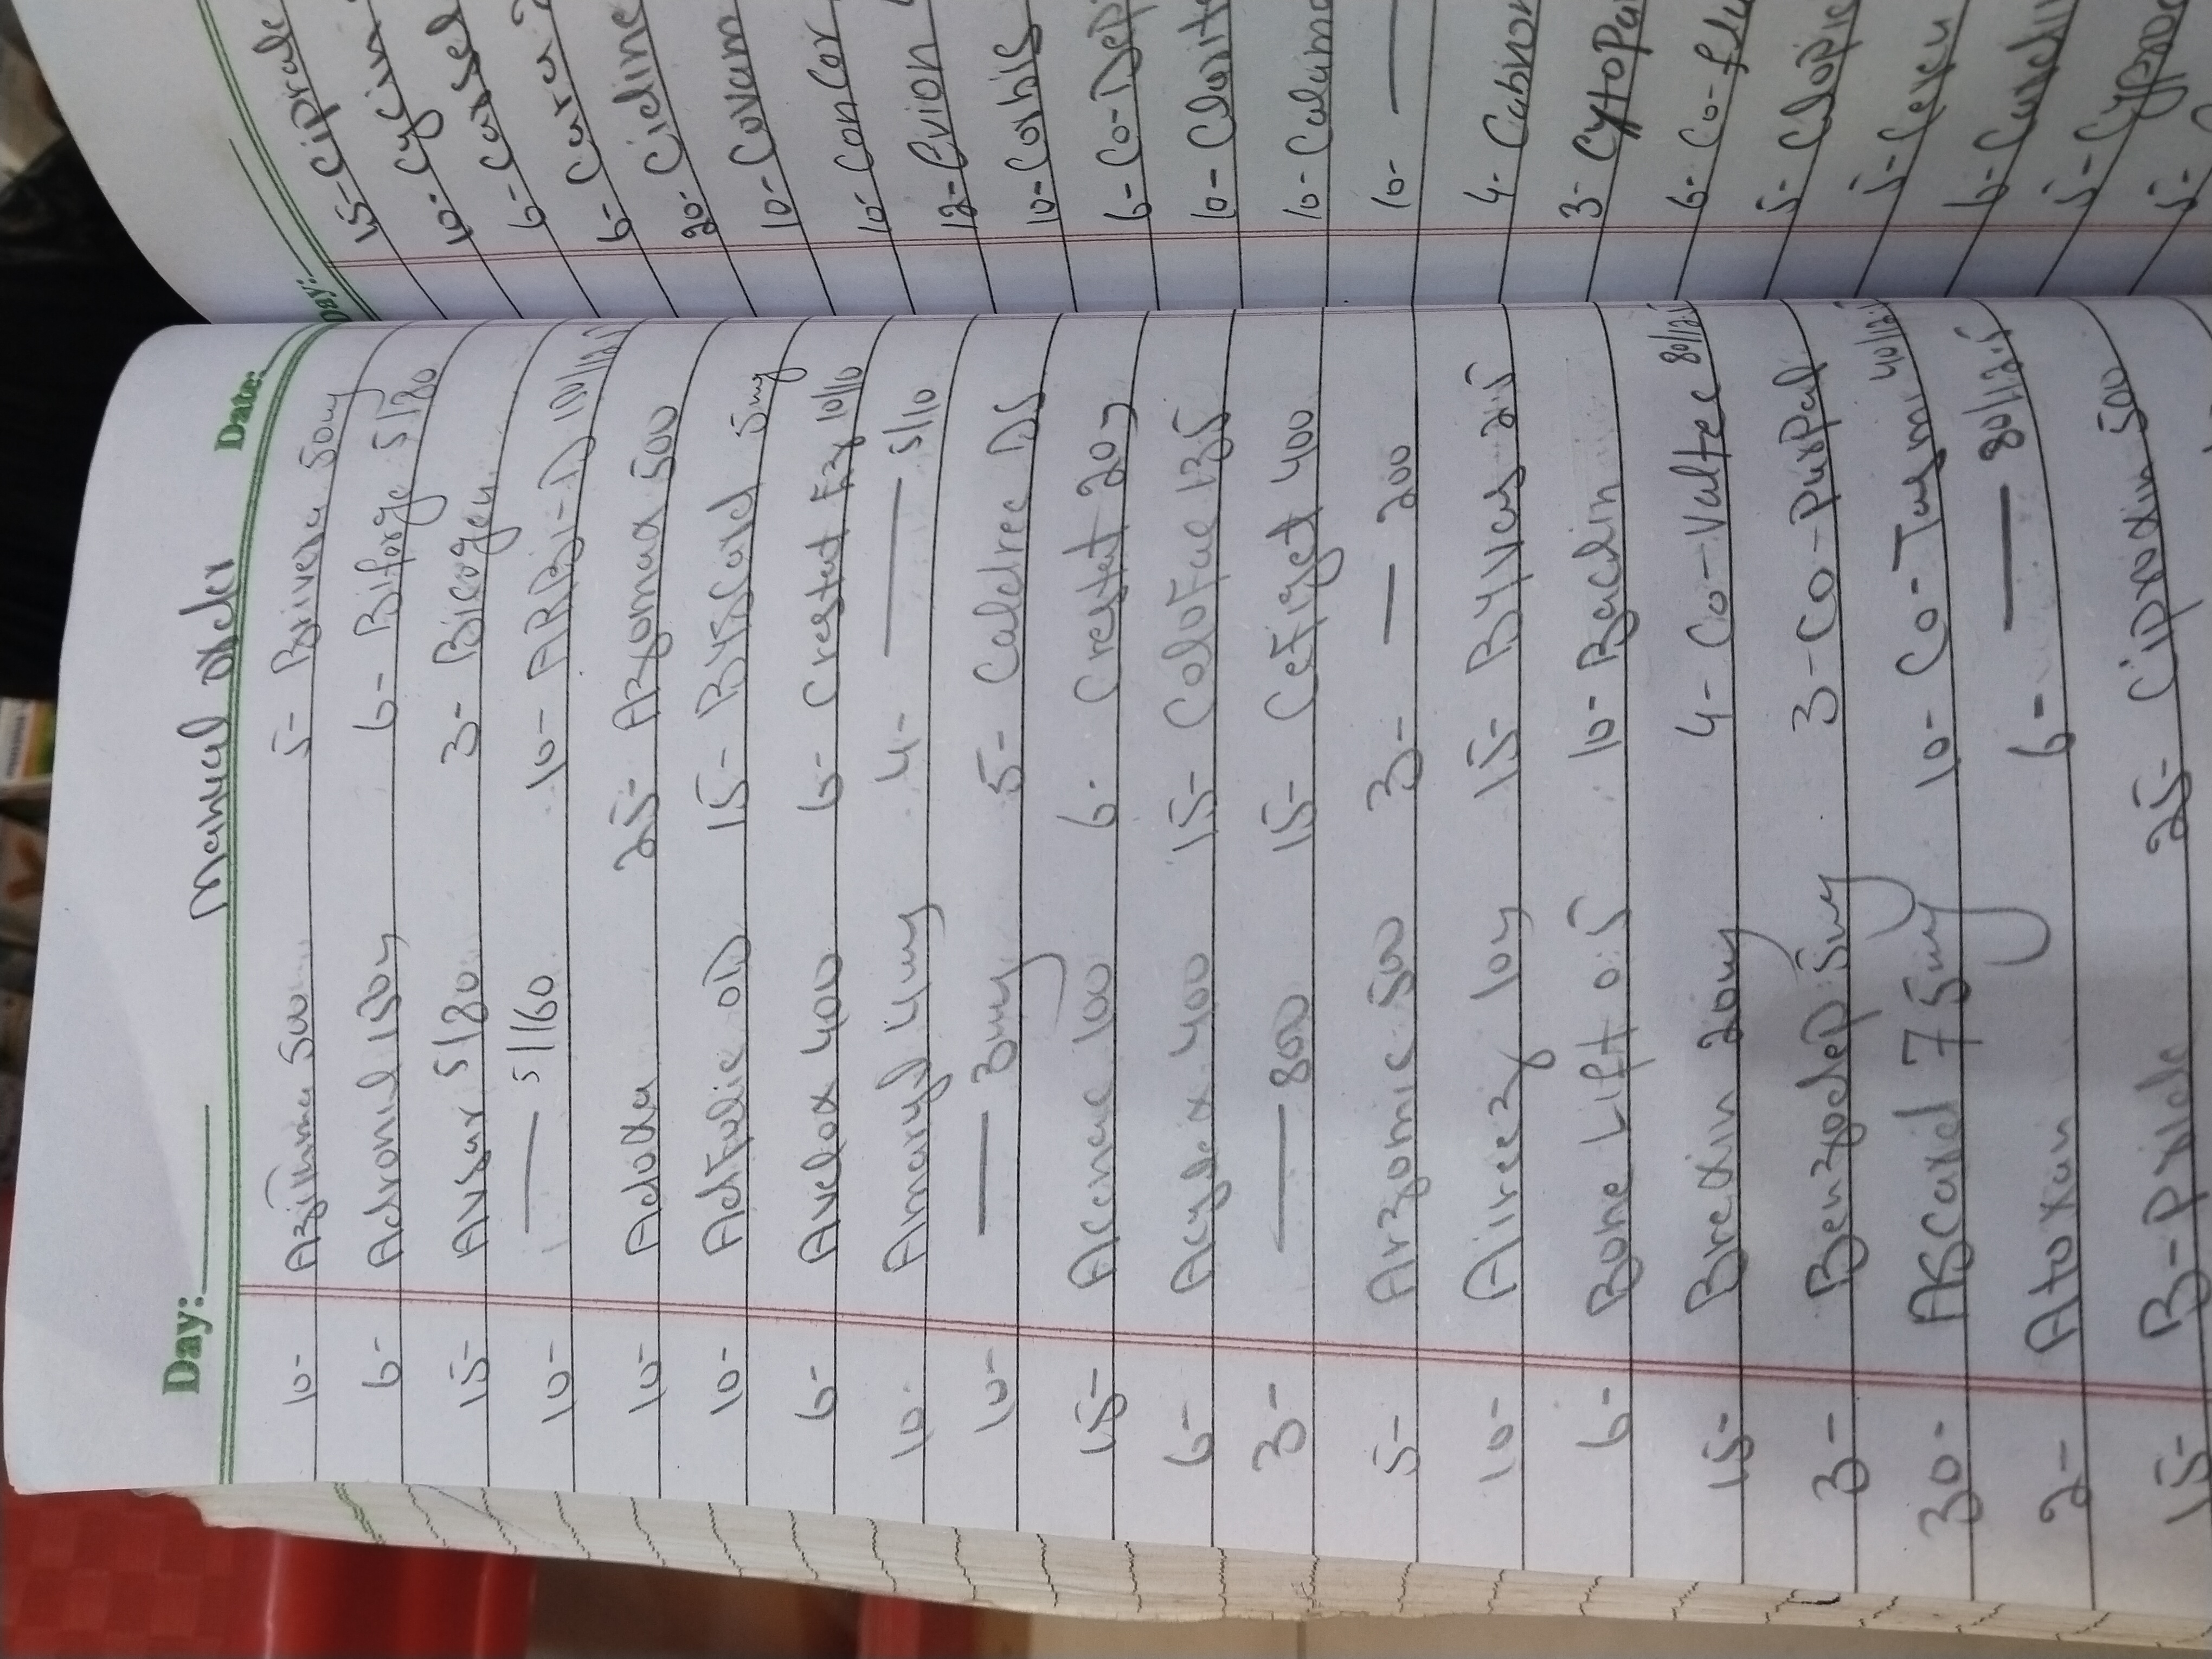 Day: Date:
Manual order
10- Azitma 500 5- Brivera 50mg
6- Adronil 150mg 6- Biforge 5/80
15- Avsar 5/80 3- Bicogen
10- —— 5/160 10- ARBI-D 10/12.5
10- Adaxa 25- Azomax 500
10- Adfolic OD 15- Byscard 5mg
6- Avelox 400 6- Crestat Eza 10/10
10- Amaryl 4mg 4- —— 5/10
10- —— 3mg 5- Caldree DS
15- Acenac 100 6- Crestat 20mg
6- Acylex 400 15- Colofac 135
3- —— 800 15- Cefiget 400
5- Arzomic 500 3- — 200
10- Aireez 10mg 15- Byvas 2.5
6- Bone Lift 0.5 10- Baclin
15- Brexin 20mg 4- Co-Valtec 80/12.5
3- Benzodep 5mg 3- Co-Puxpal
30- Ascard 75mg 10- Co-Tasmi 40/12.5
2- Atoxan 6- —— 80/12.5
15- B-Pride 25- Ciproxin 500
Day:
15- Ciprale
10- Cycin
6-
6-
20- Cidline
10- Covam
10- Concor
12- Evion
10-
6- Co-Dep
10- Clarit
10- Calamo
10- ——
4- Cabinor
3- CytoPa
6- Co-flu
5- Clopid
5-
6-
5-
5-